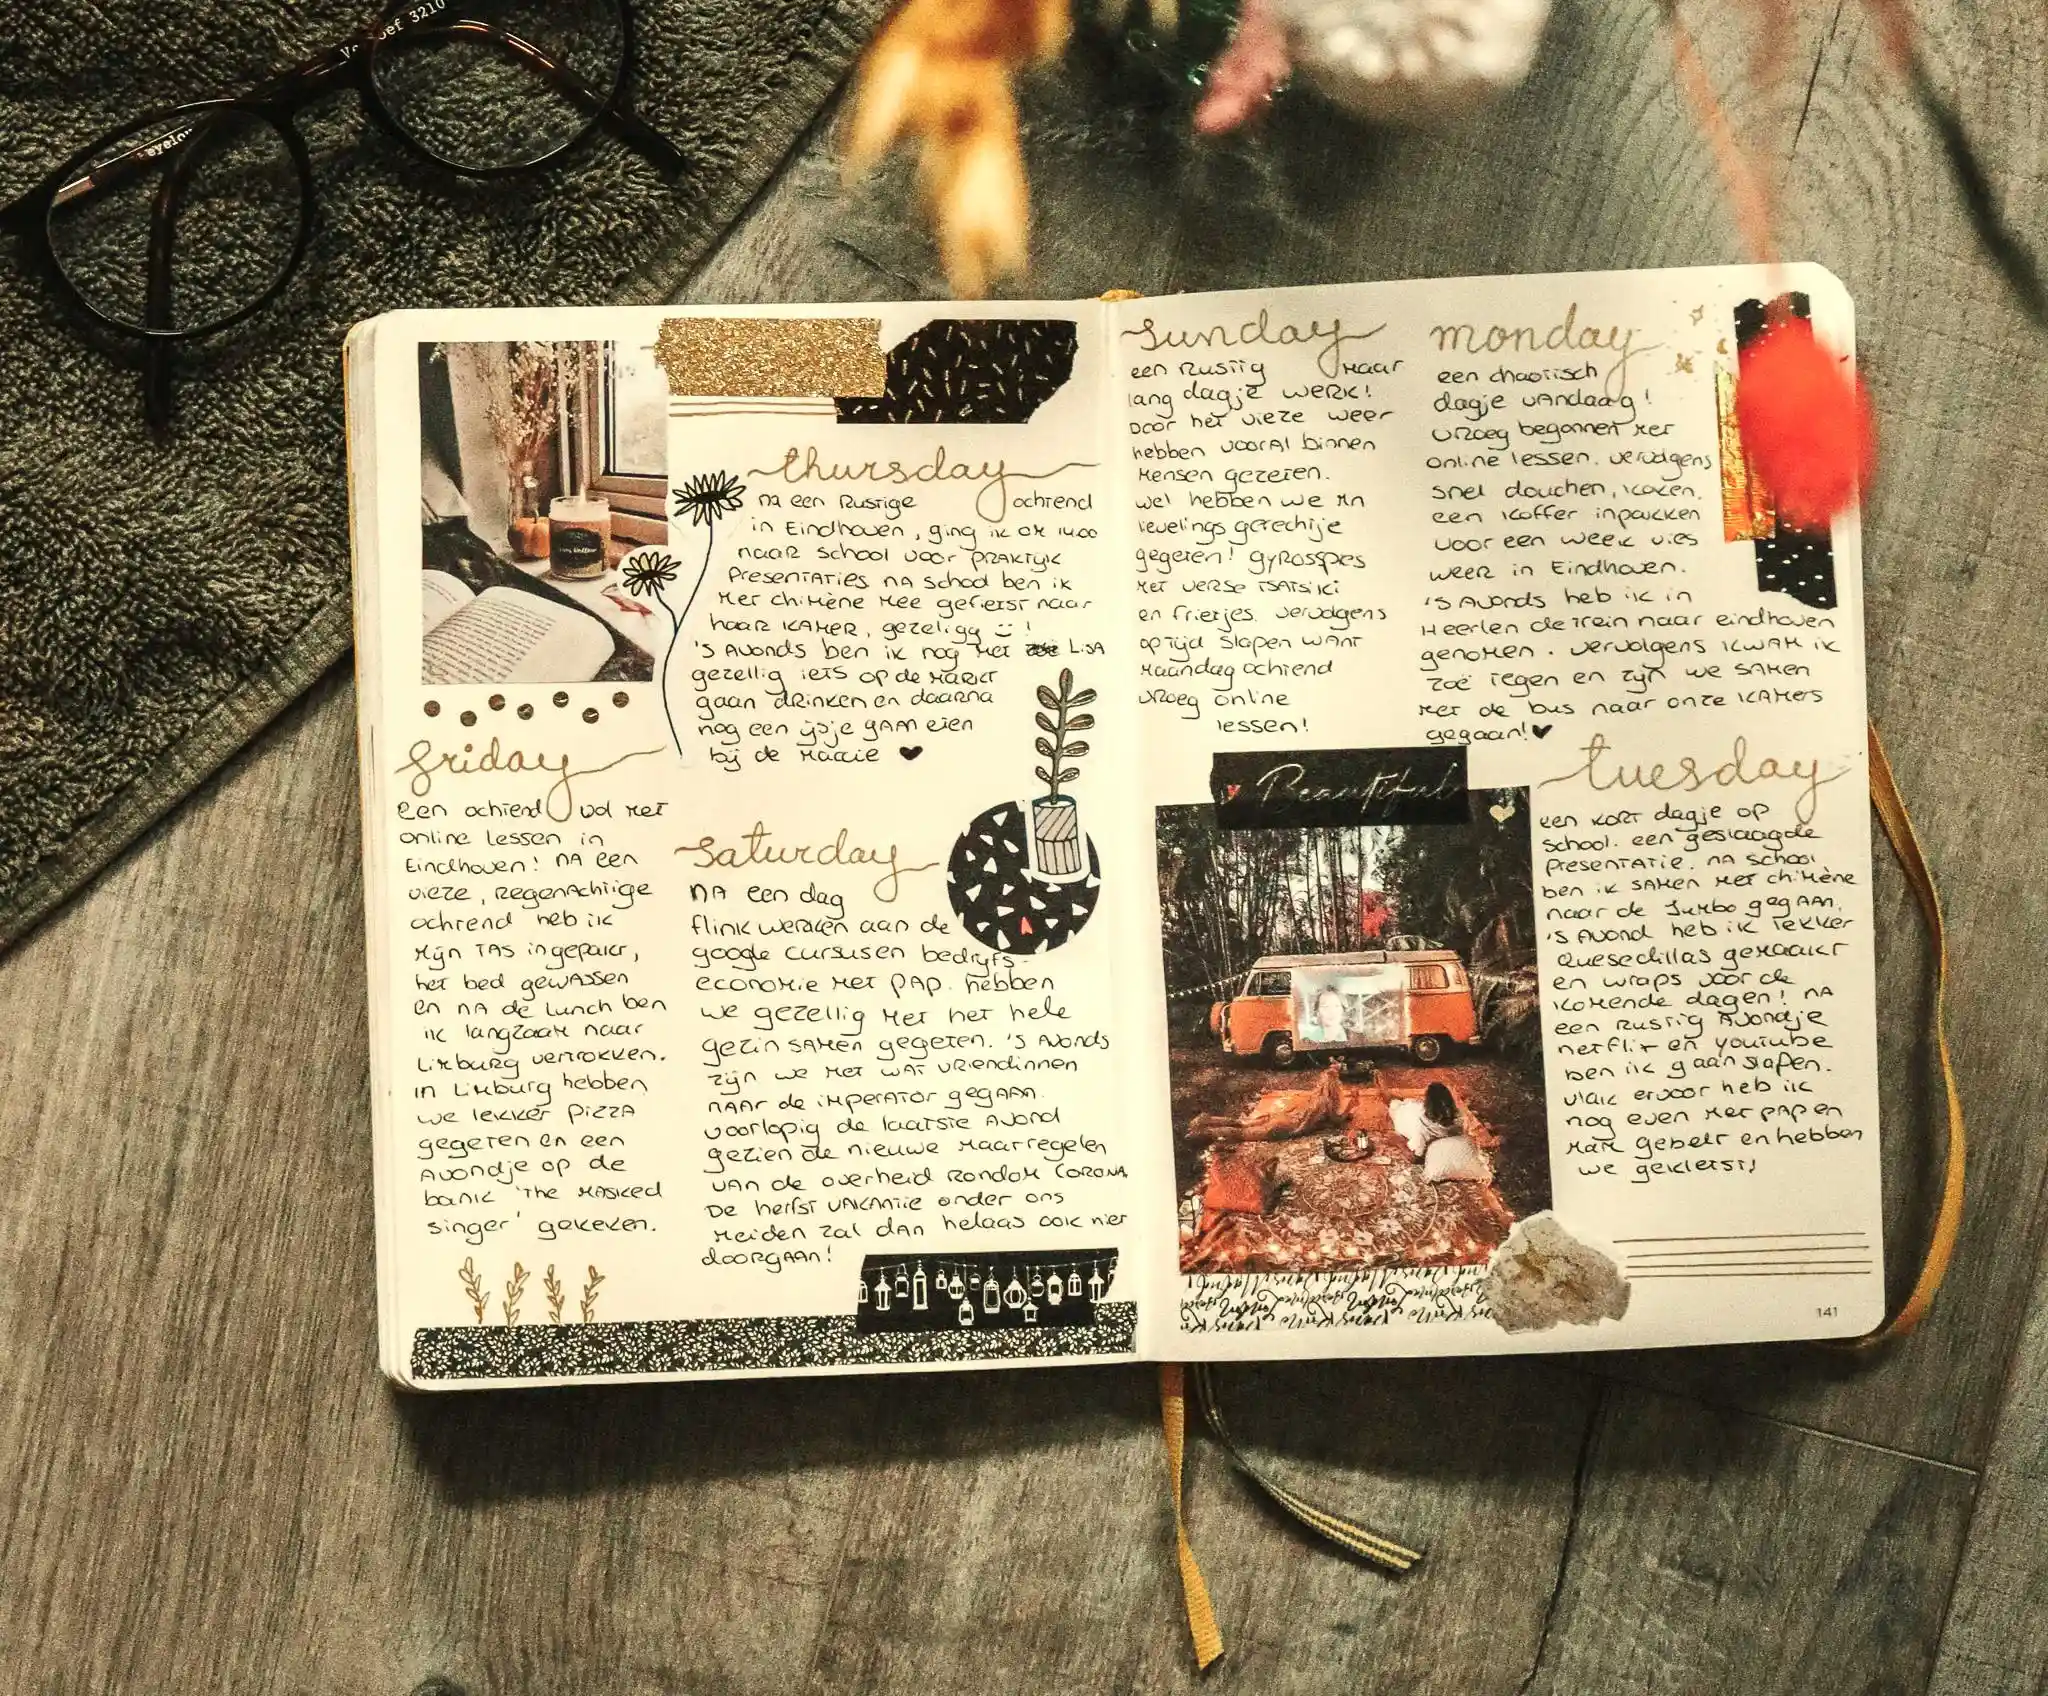 3210
eyelov
thursday
na een rustige ochtend
in Eindhoven, ging ik om 14.00
naar school voor praktijk
presentaties na school ben ik
met chimène mee gefietst naar
haar kamer, gezellig :) !
's avonds ben ik nog met Lisa
gezellig iets op de markt
gaan drinken en daarna
nog een ijsje gaan eten
bij de
friday
een ochtend vol met
online lessen in
Eindhoven! na een
vieze, regenachtige
ochtend heb ik
mijn tas ingepakt,
het bed gewassen
en na de lunch ben
ik langzaam naar
Limburg vertrokken.
in Limburg hebben
we lekker pizza
gegeten en een
avondje op de
bank 'the masked
singer' gekeken.
saturday
na een dag
flink werken aan de
google cursussen bedrijfs-
economie met pap. hebben
we gezellig met het hele
gezin samen gegeten. 's avonds
zijn we met wat vriendinnen
naar de imperator gegaan.
voorlopig de laatste avond
gezien de nieuwe maatregelen
van de overheid rondom corona.
De herfst vakantie onder ons
meiden zal dan helaas ook niet
doorgaan!
sunday
een rustig maar
lang dagje werk!
Door het vieze weer
hebben vooral binnen
mensen gezeten.
wel hebben we mn
lievelings gerechtje
gegeten! gyrosspies
met verse tsatsiki
en frietjes. vervolgens
optijd slapen want
maandag ochtend
vroeg online
lessen!
monday
een chaotisch
dagje vandaag!
vroeg begonnen met
online lessen. vervolgens
snel douchen, koken,
een koffer inpakken
voor een week vies
weer in Eindhoven.
's avonds heb ik in
Heerlen de trein naar eindhoven
genomen. vervolgens kwam ik
zoë tegen en zijn we samen
met de bus naar onze kamers
gegaan!
Beautiful
tuesday
een kort dagje op
school. een geslaagde
presentatie. na school
ben ik samen met chimène
naar de Jumbo gegaan.
's avond heb ik lekker
quesedillas gemaakt
en wraps voor de
komende dagen! na
een rustig avondje
netflix en youtube
ben ik gaan slapen.
vlak ervoor heb ik
nog even met pap en
mam gebelt en hebben
we gekletst!
141